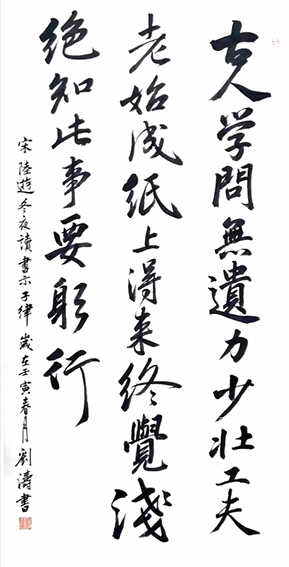 古人学問無遺力少壮工夫
老始成纸上得来终覺淺
绝知此事要躬行
宋陸遊冬夜讀書示子律歲在壬寅春月劉濤書